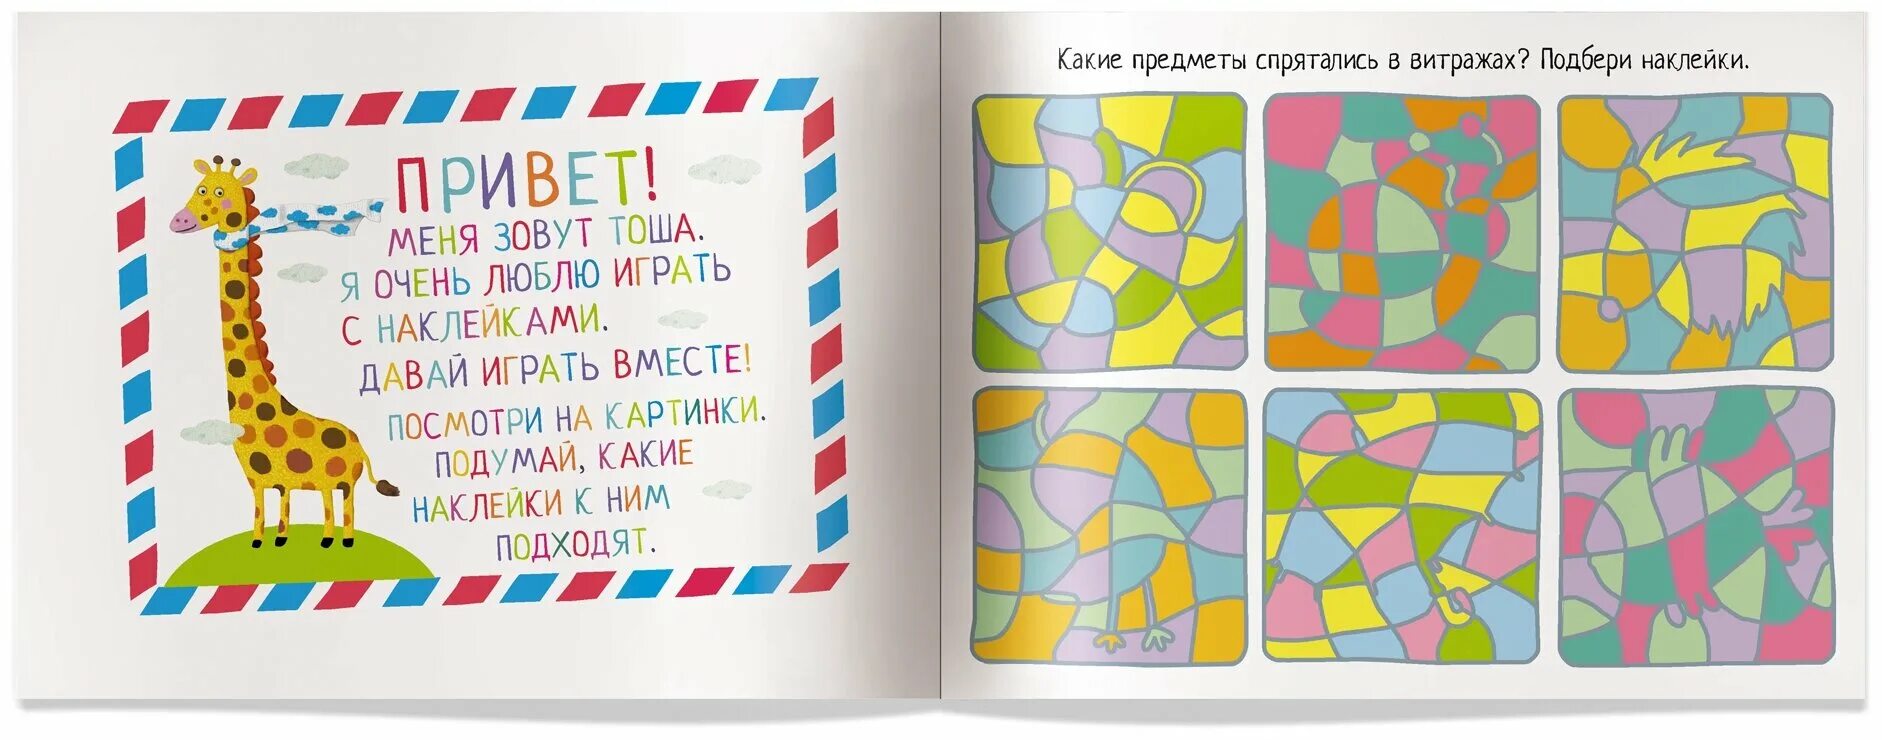 ПРИВЕТ!
МЕНЯ ЗОВУТ ТОША.
Я ОЧЕНЬ ЛЮБЛЮ ИГРАТЬ
С НАКЛЕЙКАМИ.
ДАВАЙ ИГРАТЬ ВМЕСТЕ!
ПОСМОТРИ НА КАРТИНКИ.
ПОДУМАЙ, КАКИЕ
НАКЛЕЙКИ К НИМ
ПОДХОДЯТ.
Какие предметы спрятались в витражах? Подбери наклейки.